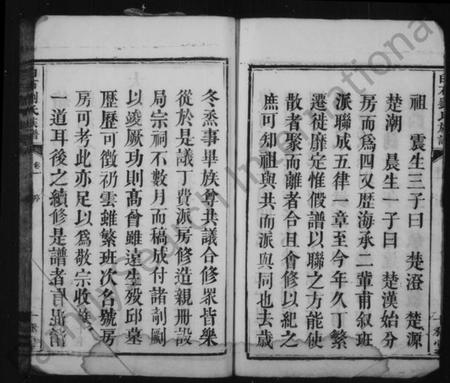 祖　震生三子曰　楚澄　楚源
楚潮　晨生一子曰　楚漢始分
房而為四又歷海承二輩甫叙班
派聯成五律一章至今年久丁繁
遷徙靡定惟假譜以聯之方能使
散者聚而離者合且會修以紀之
庶可知祖與共而派與同也去歲
冬烝事畢族尊共議合修眾皆樂
從於是議丁費派房修造親冊設
局宗祠不數月而稿成付諸剞劂
以竣厥功則高曾雖遠生歿邱墓
歷歷可徵礽雲雖繁班次名號房
房可考此亦足以為敬宗收族
一道耳後之續修是譜者
氏族譜
卷一